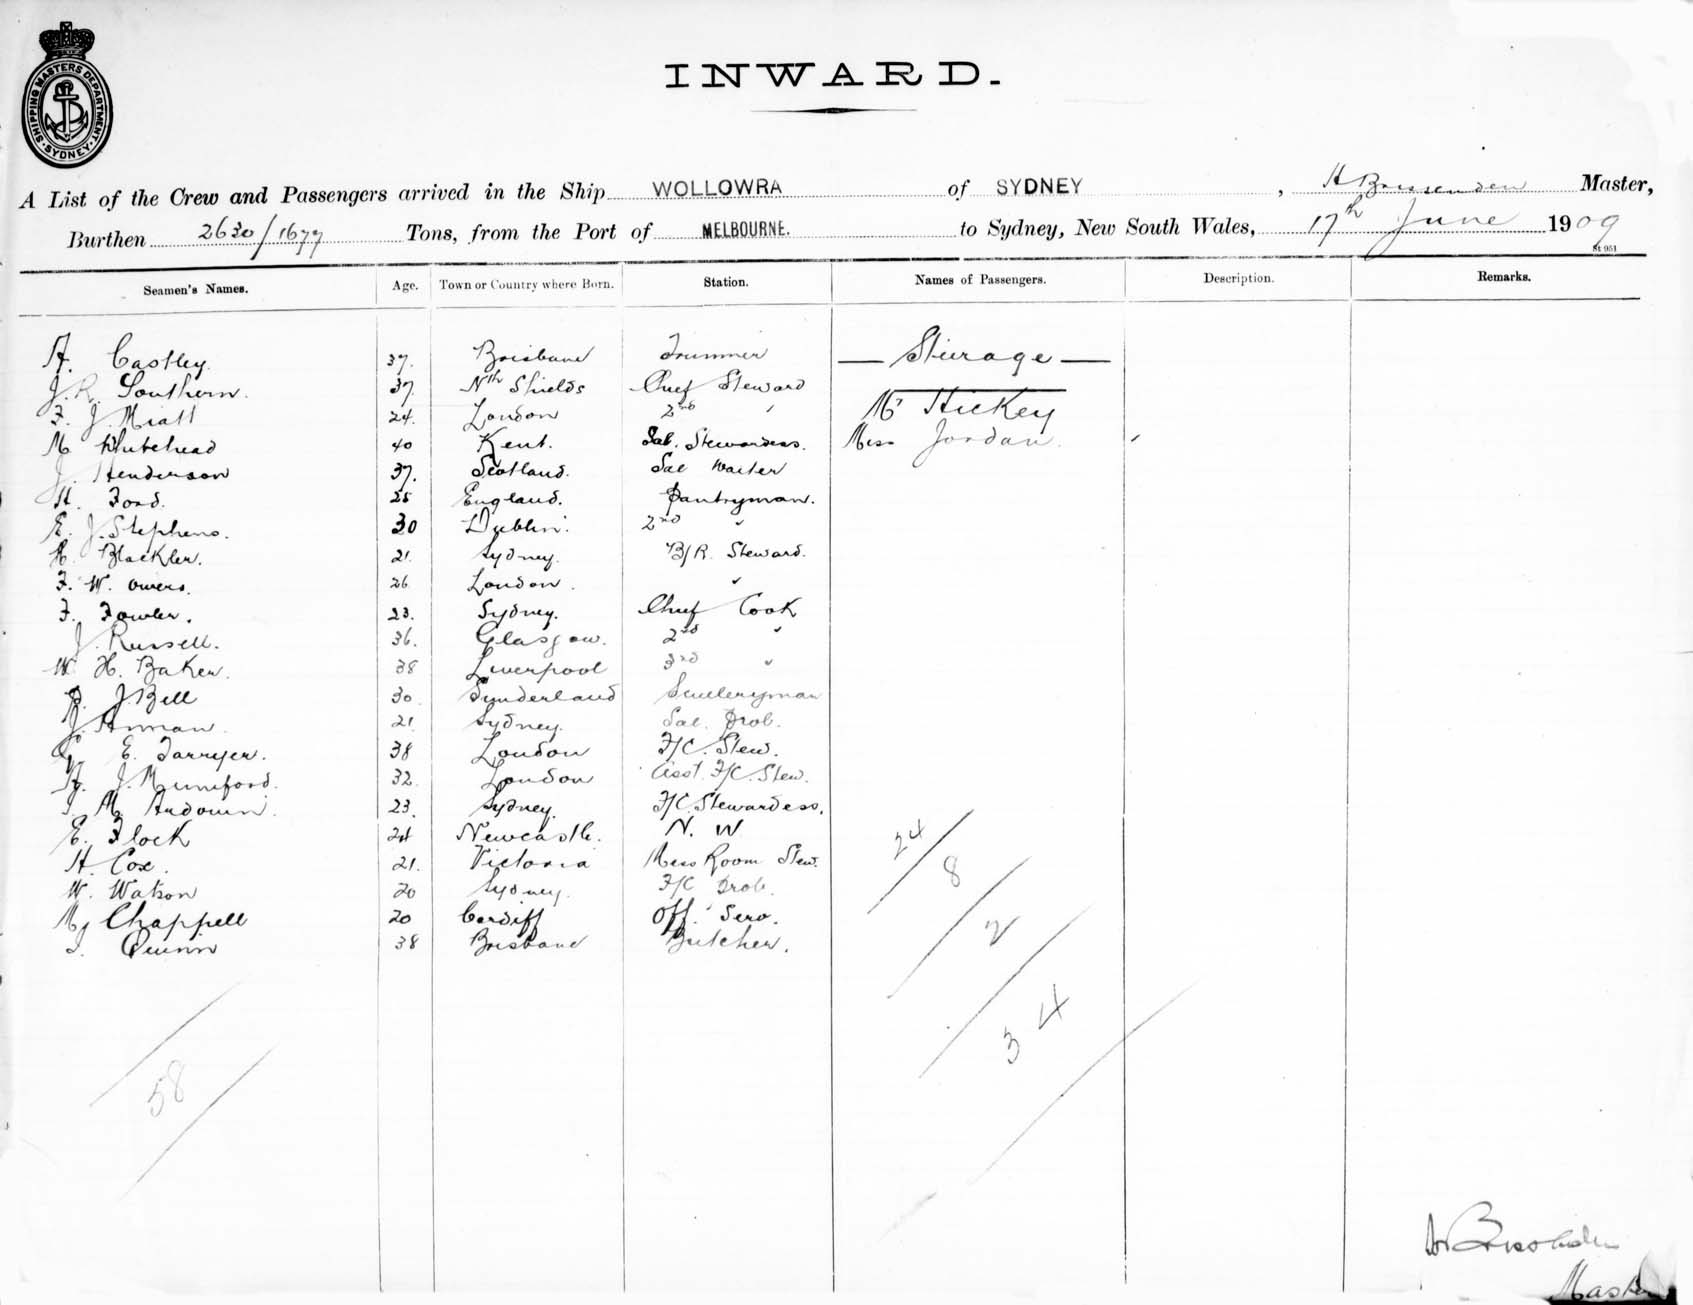 SHIPPING MASTERS DEPARTMENT
SYDNEY
INWARD.
A List of the Crew and Passengers arrived in the Ship WOLLOWRA of SYDNEY, H Master,
Burthen 2630/1677 Tons, from the Port of MELBOURNE. to Sydney, New South Wales, 17th June 1909
St 951
Seamen's Names. Age. Town or Country where Born. Station. Names of Passengers. Description. Remarks.
A. Castley. 37. Brisbane Trimmer — Sturage —
J. R. Southern. 37. Nth Shields Chief Steward Mr Hickey
F. J. Miall 24. London 2nd " Miss Jordan.
M Whitehead 40 Kent. Sal. Stewardess.
J. Henderson 37. Scotland. Sal Waiter
H. Ford. 25 England. Pantryman.
E. J. Stephens. 30 Dublin. 2nd "
H. Blackler. 21. Sydney. B/R. Steward.
F. W. Owers. 26 London. "
F. Fowler. 23. Sydney. Chief Cook
J. Russell. 36. Glasgow. 2nd "
W. H. Baker. 38 Liverpool 3rd "
J. Bell 30. Sunderland Sculleryman
J. Inman. 21. Sydney. Sal. Prob.
G. E. Tarryer. 38 London F/C. Stew.
A. J. Mumford. 32. London Asst. F/C. Stew.
M. 23. Sydney. F/C. Stewardess.
E. Flock 24 Newcastle. N. W
H. Cox. 21. Victoria Mess Room Stew.
W. Watson 20 Sydney. F/C Prob.
M. Chappell 20 Cardiff Off. Serv.
J. Quinn 38 Brisbane Butcher.
24
8
2
34
58
Master